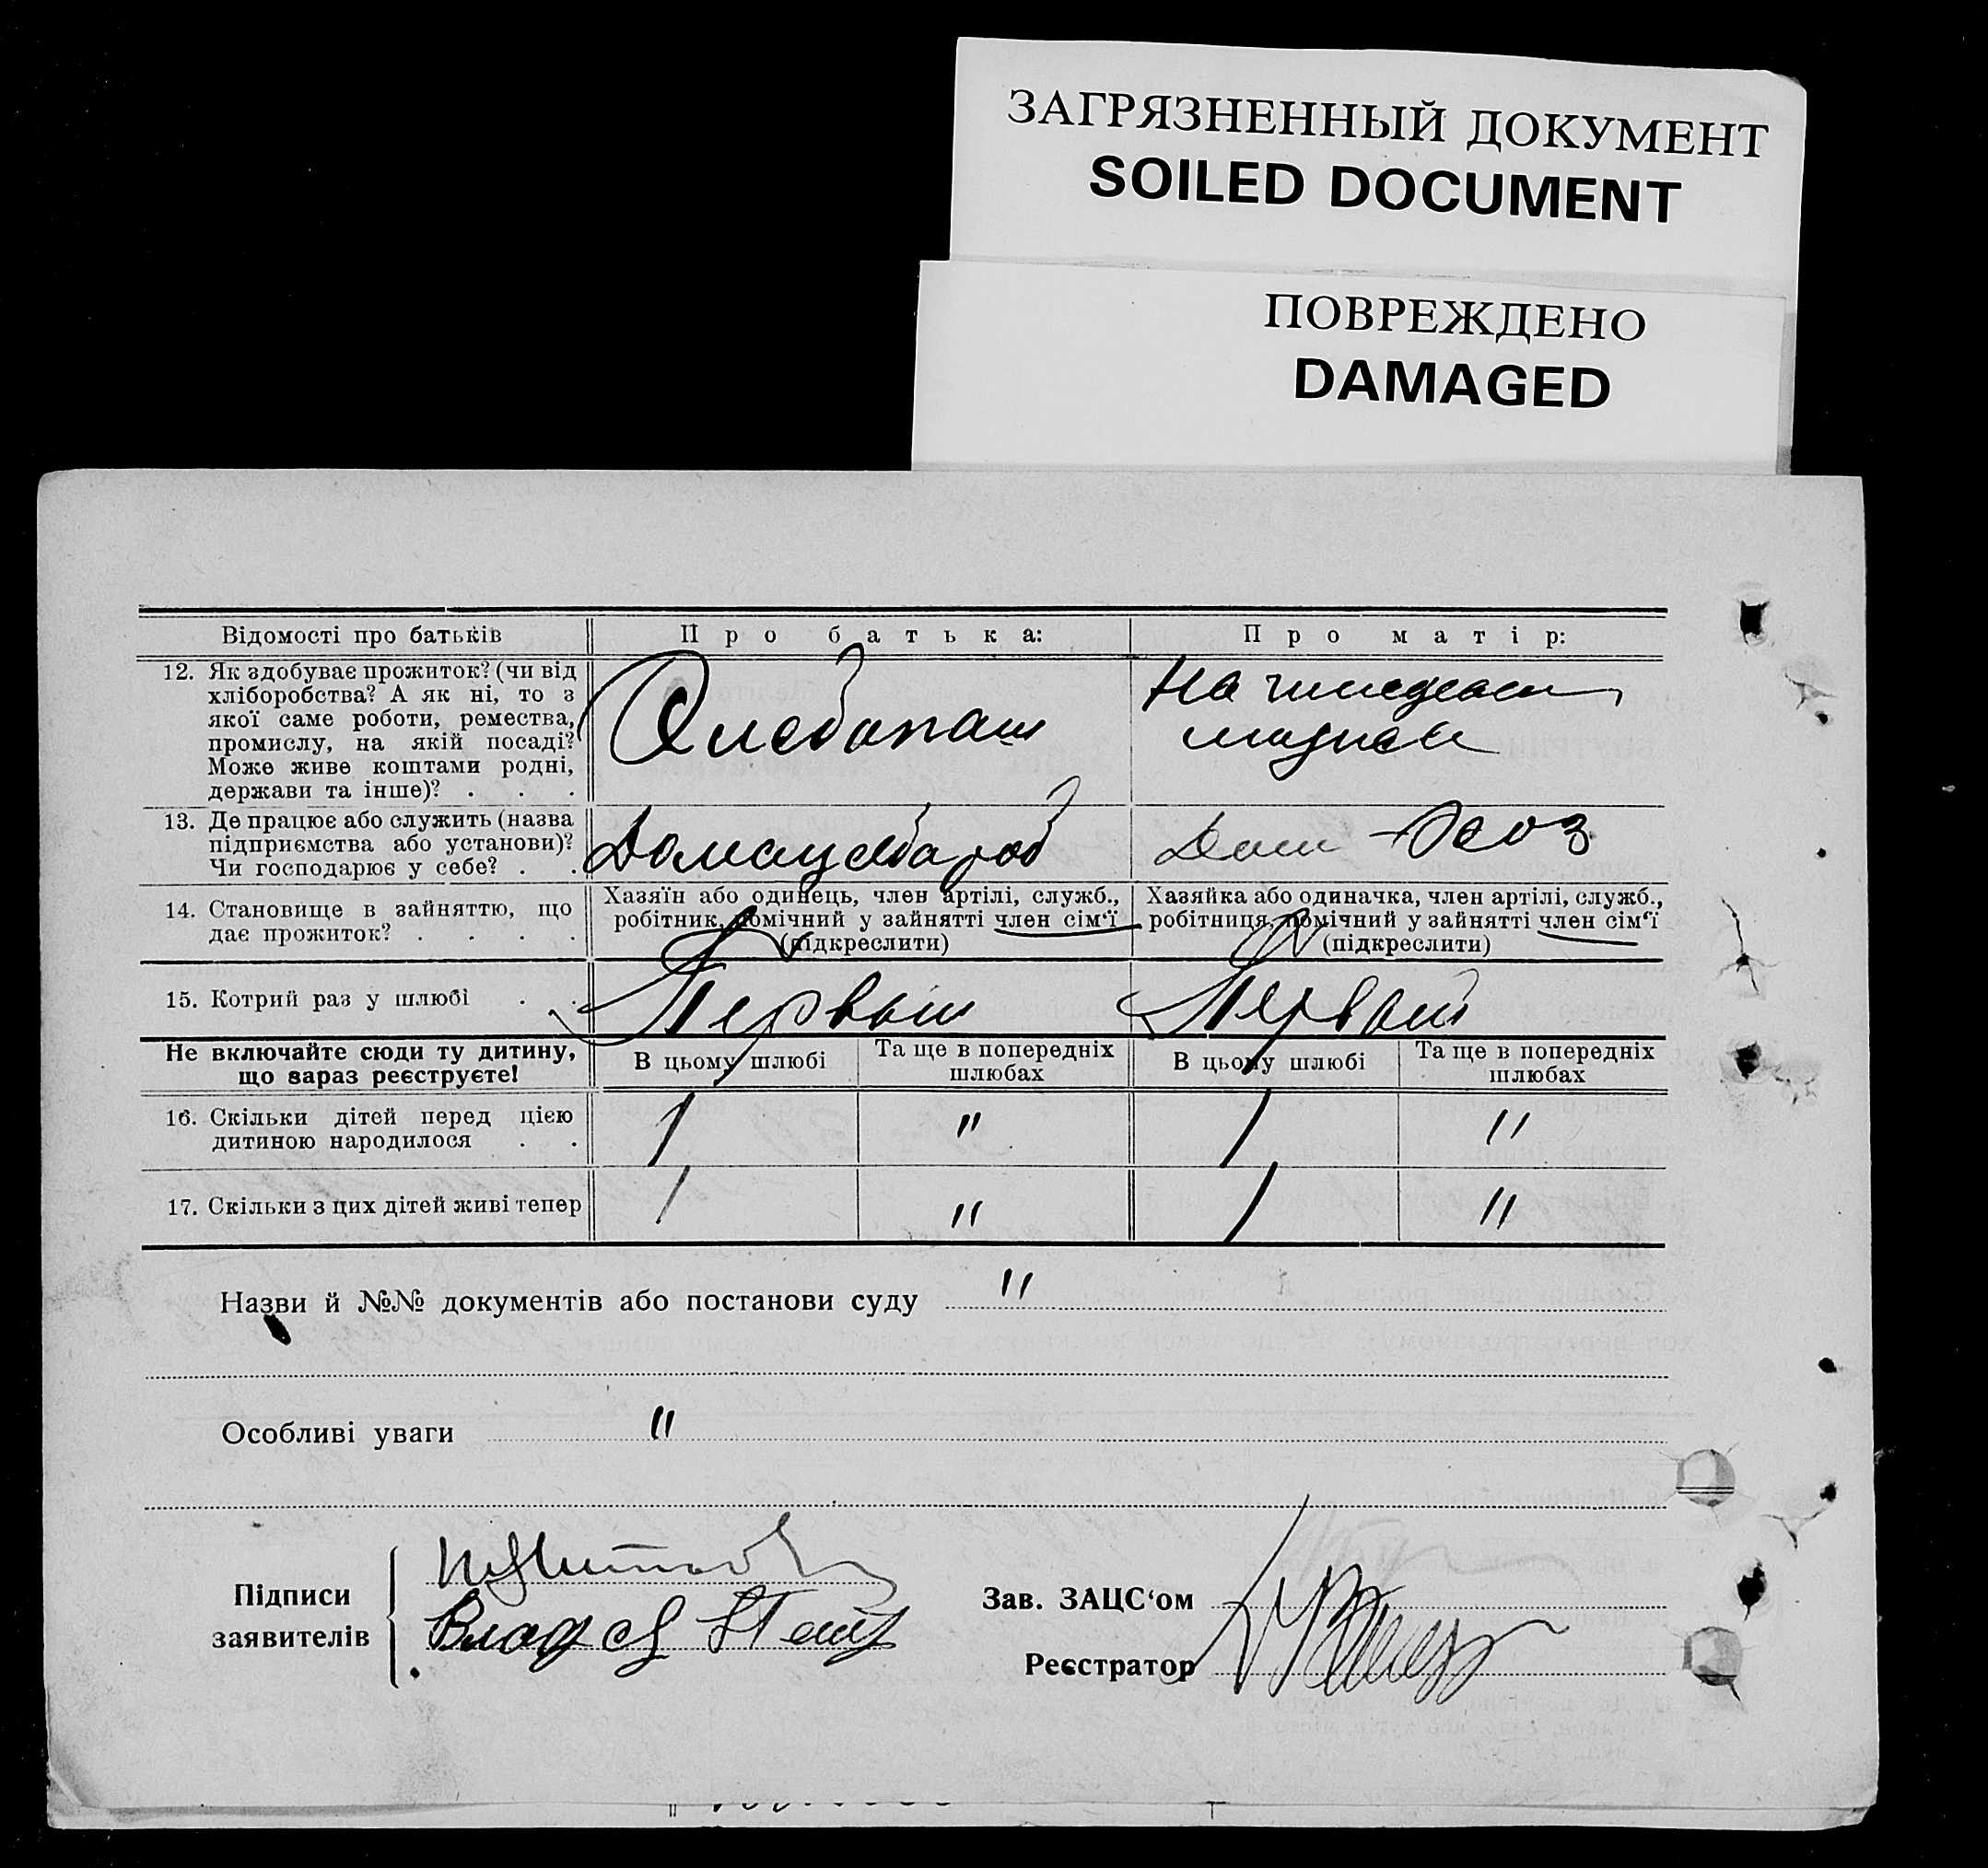 ЗАГРЯЗНЕННЫЙ ДОКУМЕНТ
SOILED DOCUMENT
ПОВРЕЖДЕНО
DAMAGED
Відомості про батьків
Про батька:
Про матір:
12. Як здобуває прожиток? (чи від
хліборобства? А як ні, то з
якої саме роботи, ремества,
промислу, на якій посаді?
Може живе коштами родні,
держави та інше)? . . .
На
13. Де працює або служить (назва
підприємства або установи)?
Чи господарює у себе? . .
14. Становище в зайняттю, що
дає прожиток? . . . .
Хазяїн або одинець, член артілі, служб.,
робітник, помічний у зайнятті член сім'ї
(підкреслити)
Хазяйка або одиначка, член артілі, служб.,
робітниця, помічний у зайнятті член сім'ї
(підкреслити)
15. Котрий раз у шлюбі . .
Первый
Первый
Не включайте сюди ту дитину,
що зараз реєструєте!
В цьому шлюбі
Та ще в попередніх
шлюбах
В цьому шлюбі
Та ще в попередніх
шлюбах
16. Скільки дітей перед цією
дитиною народилося . .
1
"
1
"
17. Скільки з цих дітей живі тепер
1
"
1
"
Назви й №№ документів або постанови суду "
Особливі уваги "
Підписи
заявителів
Зав. ЗАЦС'ом
Реєстратор